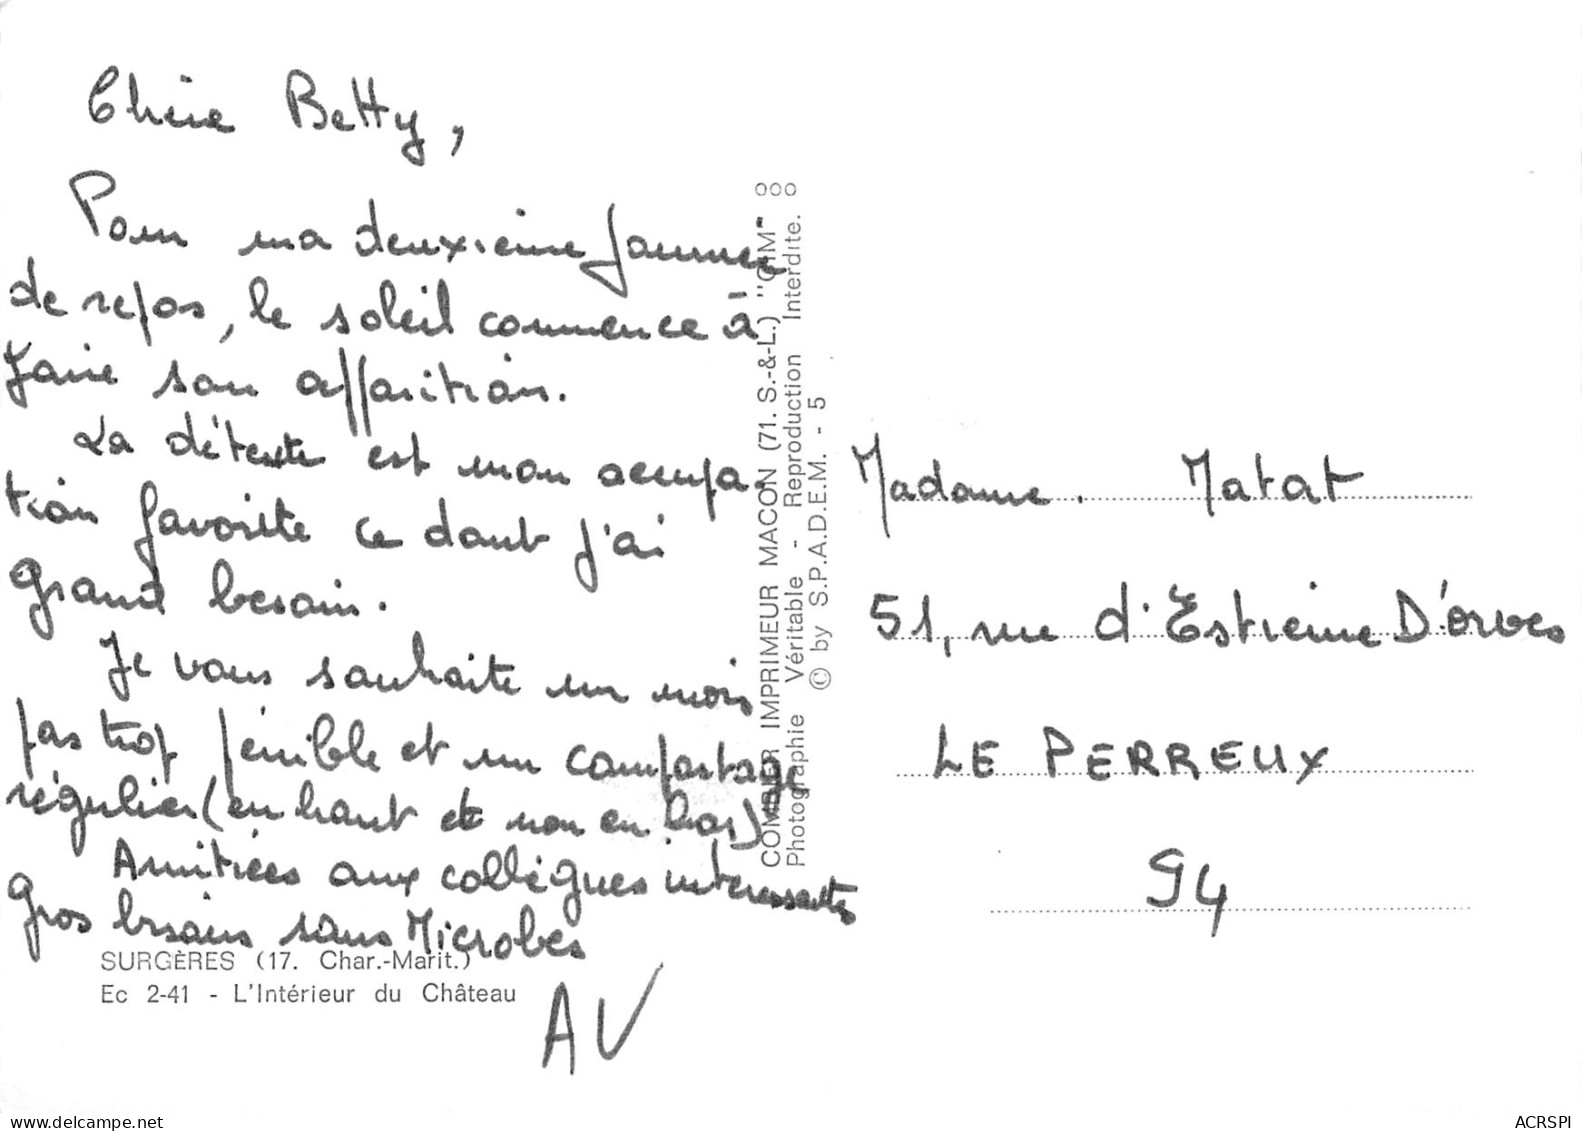 Chère Betty,
Pour ma deuxième journée
de repos, le soleil commence à
faire son apparition.
La détente est mon occupa-
tion favorite ce dont j'ai
grand besoin.
Je vous souhaite un mois
pas trop pénible et un compostage
régulier (en haut et non en bas)
Amitiées aux collègues interessantes
Gros bisous sans Microbes
AV
SURGÈRES (17. Char.-Marit.)
Ec 2-41 - L'Intérieur du Château
COMBIER IMPRIMEUR MACON (71. S.-&-L.) "CIM"
Photographie Véritable - Reproduction Interdite.
© by S.P.A.D.E.M. - 5
Madame. Matat
51, rue d'Estienne D'orves
LE PERREUX
94
delcampe.net
ACRSPI